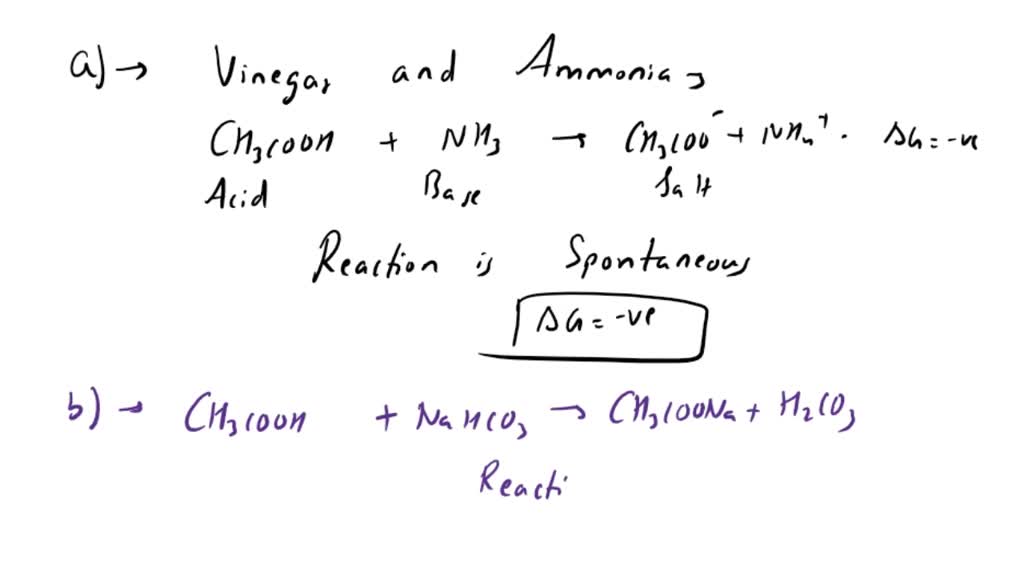 a) → Vinegar and Ammonia,
CH₃COOH + NH₃ → CH₃COO⁻ + NH₄⁺. ΔG = -ve
Acid Base Salt
Reaction is Spontaneous
ΔG = -ve
b) → CH₃COOH + NaHCO₃ → CH₃COONa + H₂CO₃
Reacti